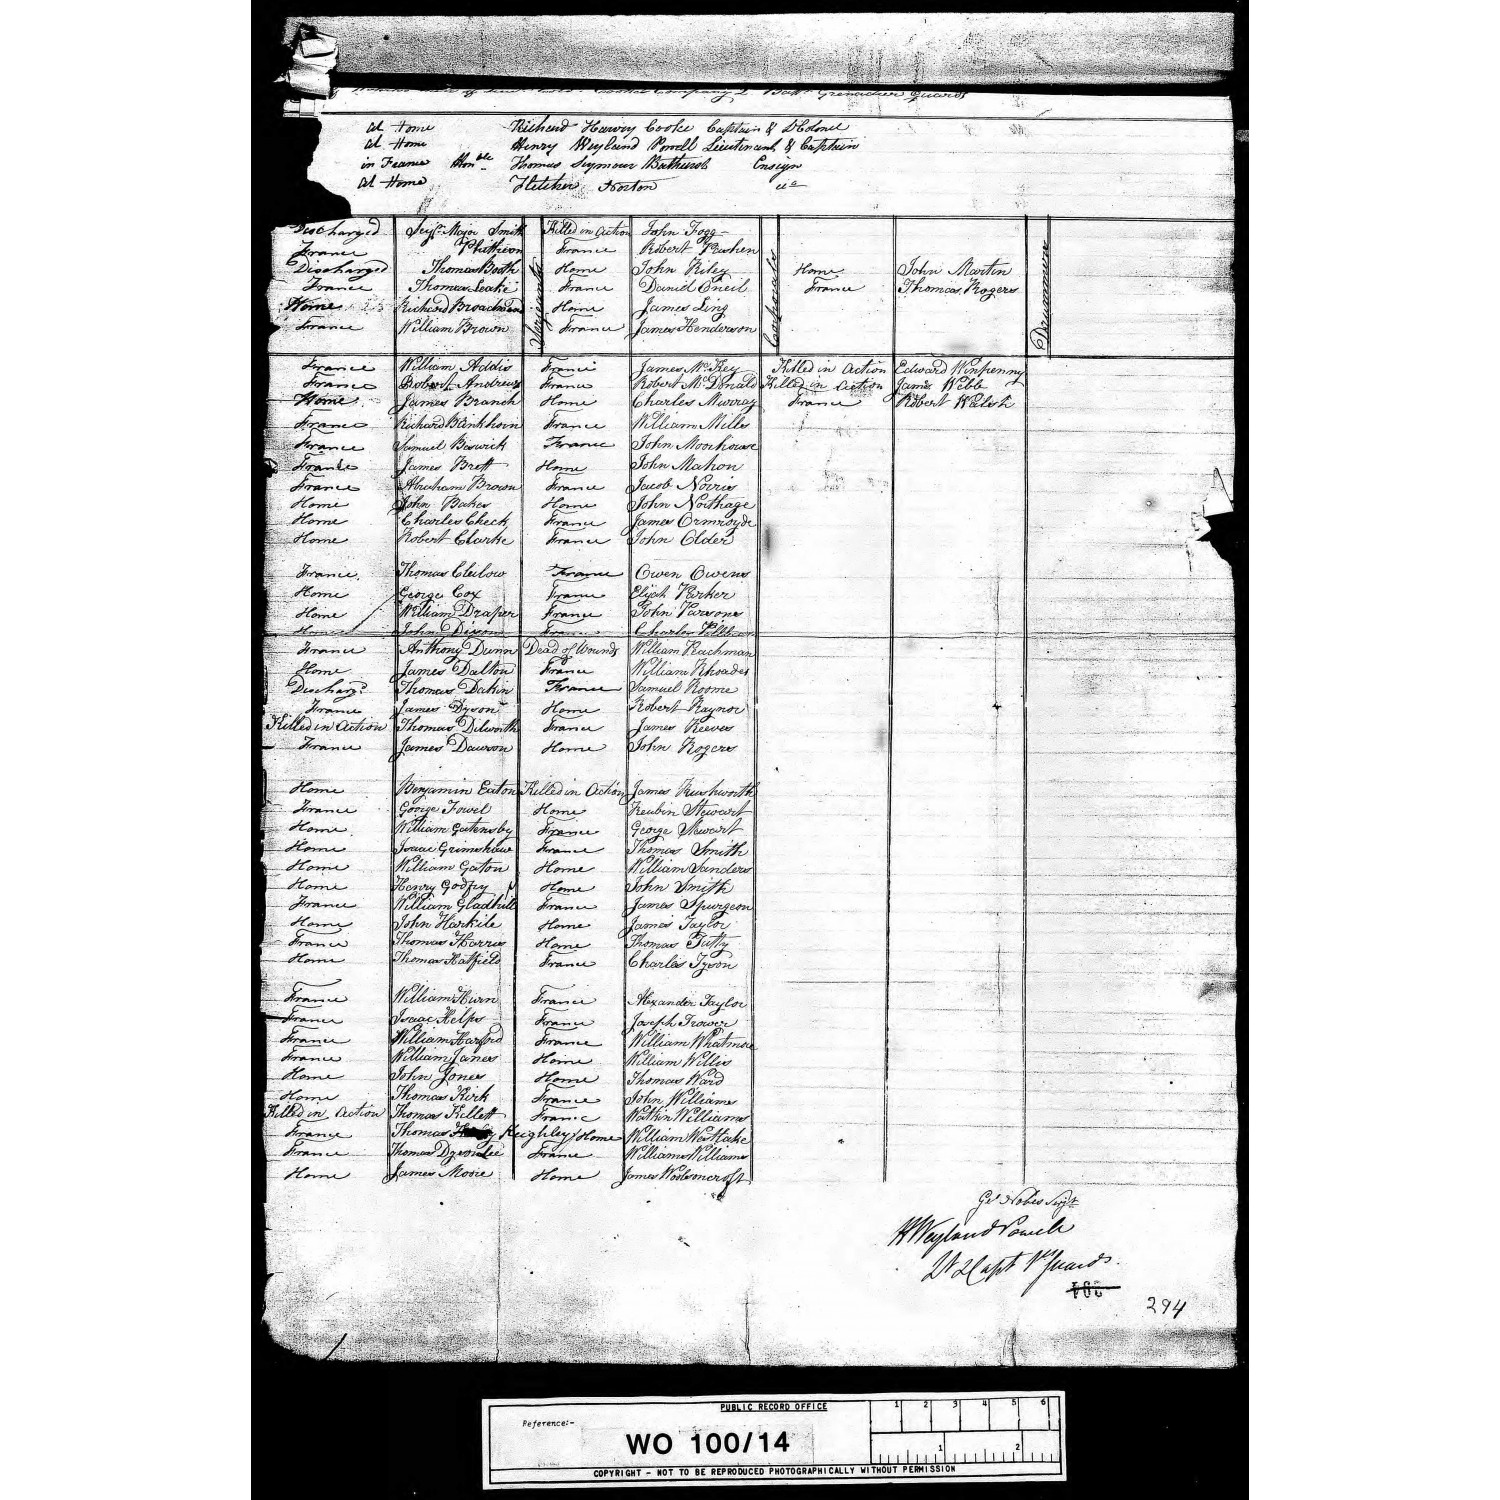 Company 2 Batt. Grenadier Guards
At Home Richard Harvey Cooke Captain & Lt Colonel
At Home Henry Weyland Powell Lieutenant & Captain
in France Honble Thomas Seymour Bathurst Ensign
At Home Fletcher Norton
Discharged Serjt. Major Smith Killed in Action John Fogg
France France Robert
Discharged Thomas Booth Home John Riley Home John Martin
France Thomas Leake France Daniel Oneil France Thomas Rogers
Home Richard Home James Ling
France William Brown France James Henderson
Serjeants
Corporals
Drummers
France William Addis France James McKey Killed in Action Edward Winpenny
France Robert Andrews France Robert McDonald Killed in Action James Webb
Home James Branch Home Charles Murray France Robert Walsh
France Richard Bankhorn France William Mills
France Samuel Baswick France John Moorhouse
France James Brett Home John Mahon
France Abraham Brown France Jacob Norris
Home John Baker Home John Northage
Home Charles Check France James Ormroyde
Home Robert Clarke France John Older
France Thomas Clulow France Owen Owens
Home George Cox France Elijah Parker
Home William Draper France John Parsons
Home John Dixon France Charles
France Anthony Dunn Dead of Wounds William Rachman
Home James Dalton France William Rhoades
Discharg'd Thomas Dakin France Samuel Roome
France James Dyson Home Robert Raynor
Killed in Action Thomas Dilworth France James Reeves
France James Dawson Home John Rogers
Home Benjamin Eaton Killed in Action James Rushworth
France George Fowel Home Reuben Stewart
Home William Gatensby France George Stewart
Home Isaac Grimshaw France Thomas Smith
Home William Gaton Home William Sanders
Home Henry Godfry Home John Smith
France William Gladhill France James Spurgeon
Home John Harkile Home James Taylor
France Thomas Harris Home Thomas Tutty
Home Thomas Hatfield France Charles Tyson
France William Hurn France Alexander Taylor
France Isaac Helps France Joseph Trower
France William Harford France William Whatmore
France William Janes Home William Willis
Home John Jones Home Thomas Ward
Home Thomas Kirk France John Williams
Killed in Action Thomas Killett France Watkin Williams
France Thomas Keighley Home William Westlake
France Thomas France William Williams
Home James Moore Home James Woolsoncroft
Geo Nobes Serjt
H Weyland Powell
Lt & Capt 1st Guards.
294
PUBLIC RECORD OFFICE
1 2 3 4 5 6
Reference:-
WO 100/14
1 2
COPYRIGHT - NOT TO BE REPRODUCED PHOTOGRAPHICALLY WITHOUT PERMISSION